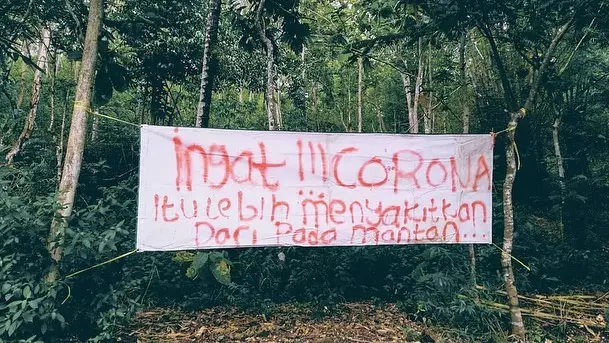 ingat !!! CORONA
Itu lebih menyakitkan
Dari Pada mantan...